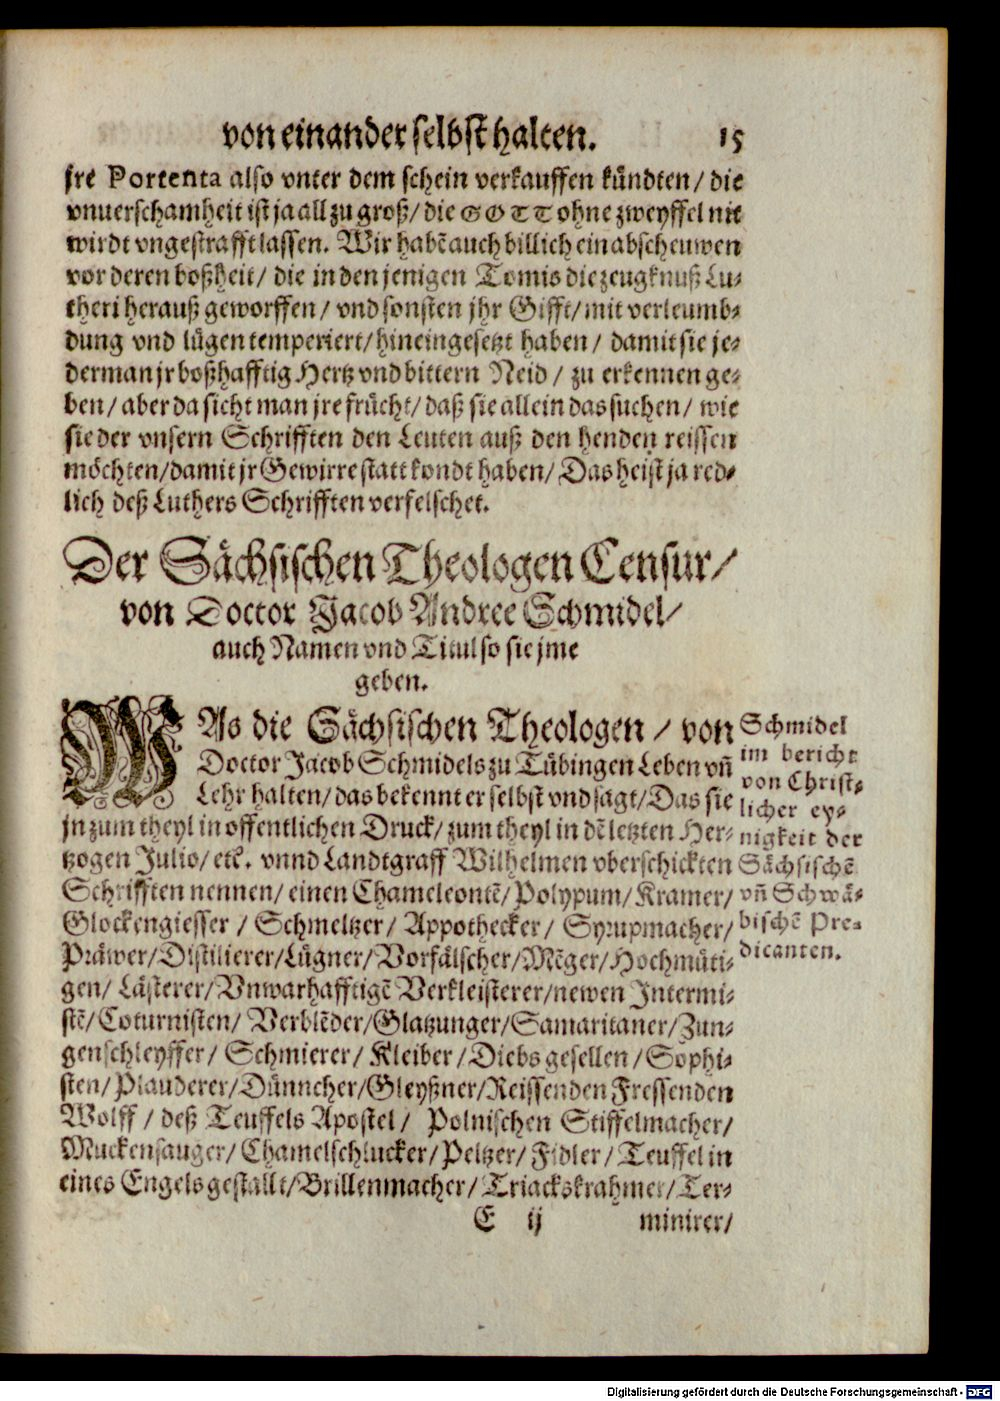 von einander selbst halten. 15
jre Portenta also vnter dem schein verkauffen kündten / die
vnuerschamheit ist ja all zu groß / die GOTT ohne zweyffel nit
wirdt vngestrafft lassen. Wir habẽ auch billich ein abscheuwen
vor deren boßheit / die in den jenigen Tomis die zeugknuß Lu-
theri herauß geworffen / vnd sonsten jhr Gifft / mit verleumb-
dung vnd lügen temperiert / hinein gesetzt haben / damit sie je-
derman jr boßhafftig Hertz vnd bittern Neid / zu erkennen ge-
ben / aber da sicht man jre frücht / daß sie allein das suchen / wie
sie der vnsern Schrifften den Leuten auß den henden reissen
möchten / damit jr Gewirre statt kondt haben / Das heist ja red-
lich deß Luthers Schrifften verfelschet.
Der Sächsischen Theologen Censur /
von Doctor Jacob Andree Schmidel /
auch Namen vnd Titul so sie jme
geben.
WAs die Sächsischen Theologen / von
Doctor Jacob Schmidels zu Tübingen Leben vñ
Lehr halten / das bekennt er selbst vnd sagt / Das sie
jn zum theyl in offentlichen Druck / zum theyl in dẽ letzten Her-
tzogen Julio / etc. vnnd Landtgraff Wilhelmen vberschickten
Schrifften nennen / einen Chameleontẽ / Polypum / Kramer /
Glockengiesser / Schmeltzer / Appothecker / Syrupmacher /
Präwer / Distilierer / Lügner / Vorfälscher / Mẽger / Hochmüti-
gen / Lästerer / Vnwarhafftigẽ Verkleisterer / newen Intermi-
stẽ / Coturnisten / Verblẽder / Glatzunger / Samaritaner / Zun-
genschleyffer / Schmierer / Kleiber / Diebs gesellen / Sophi-
sten / Plauderer / Dünncher / Gleyßner / Reissenden Fressenden
Wolff / deß Teuffels Apostel / Polnischen Stiffelmacher /
Muckensauger / Chamelschlucker / Peltzer / Fidler / Teuffel in
eines Engels gestallt / Brillenmacher / Triackskrahmer / Ter-
E ij minirer /
Schmidel
im bericht
von Christ-
licher ey-
nigkeit der
Sächsischẽ
vñ Schwä-
bischẽ Pre-
dicanten.
Digitalisierung gefördert durch die Deutsche Forschungsgemeinschaft - DFG